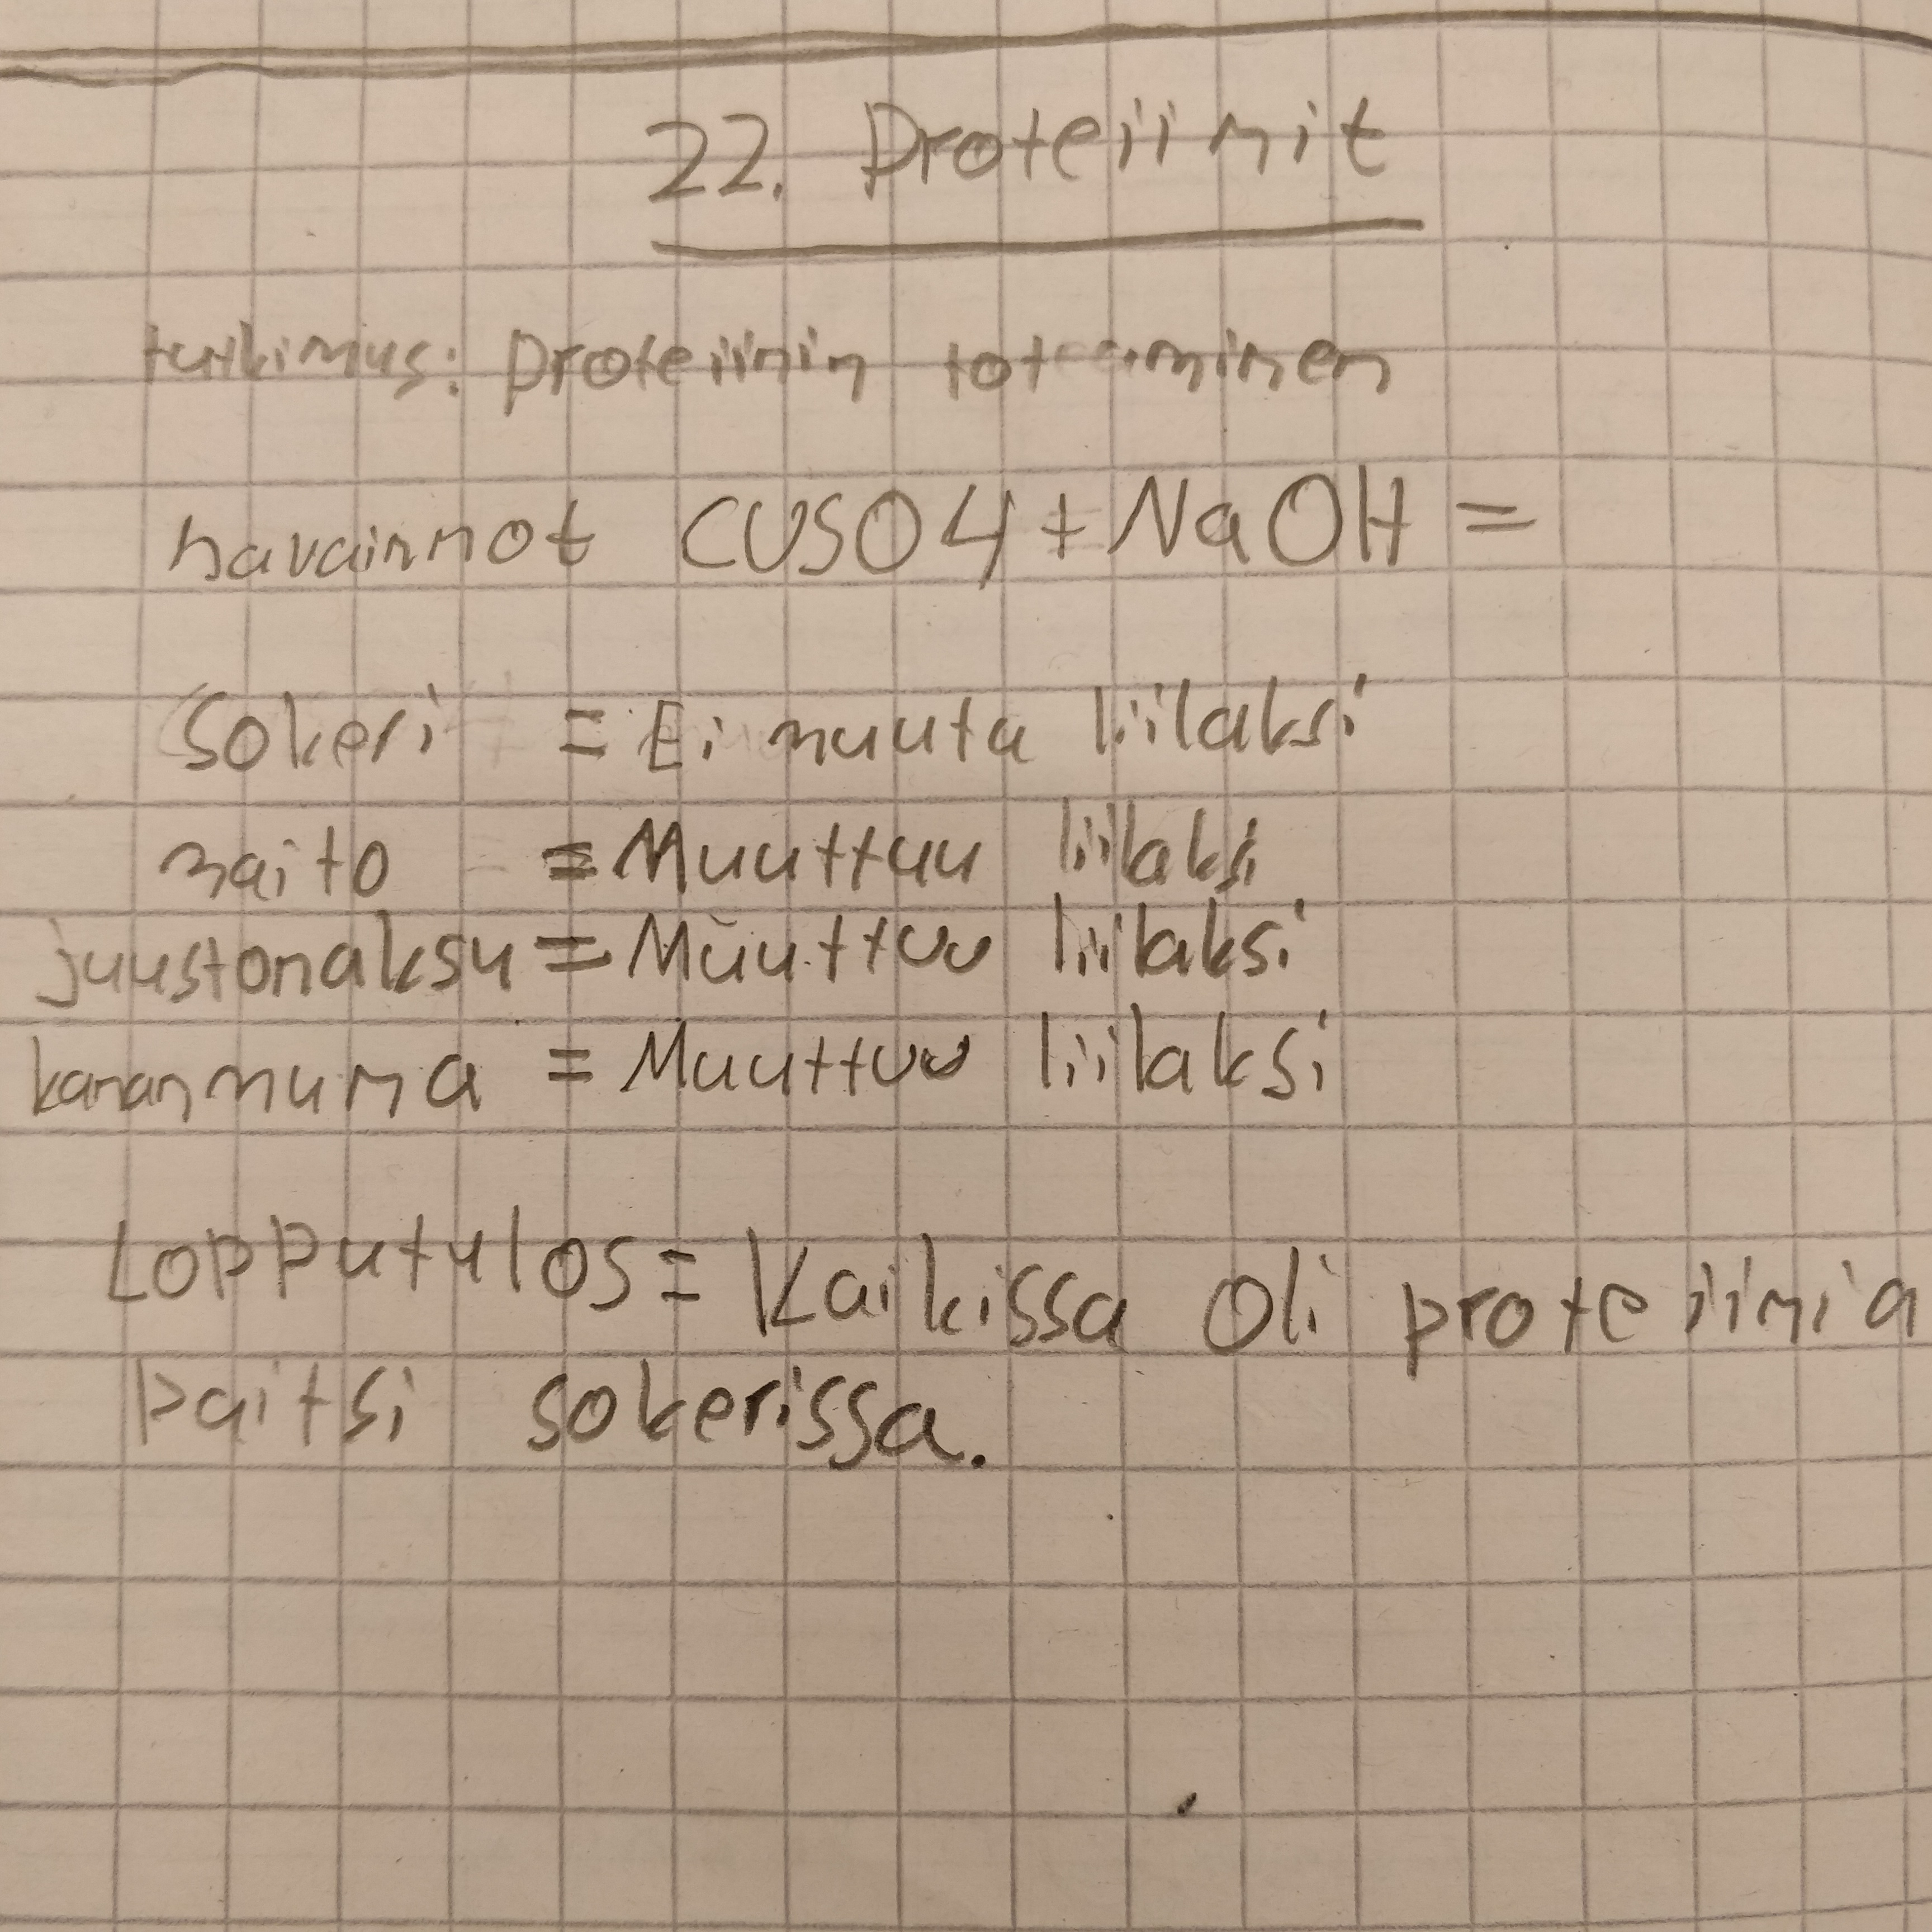 22. Proteiinit
tutkimus: proteiinin toteaminen
havainnot CUSO4 + NaOH =
Sokeri = Ei muuta liilaksi
maito = Muuttuu liilaksi
juustonaksu = Muuttuu liilaksi
kananmuna = Muuttuu liilaksi
Lopputulos = Kaikissa oli proteiinia
paitsi sokerissa.